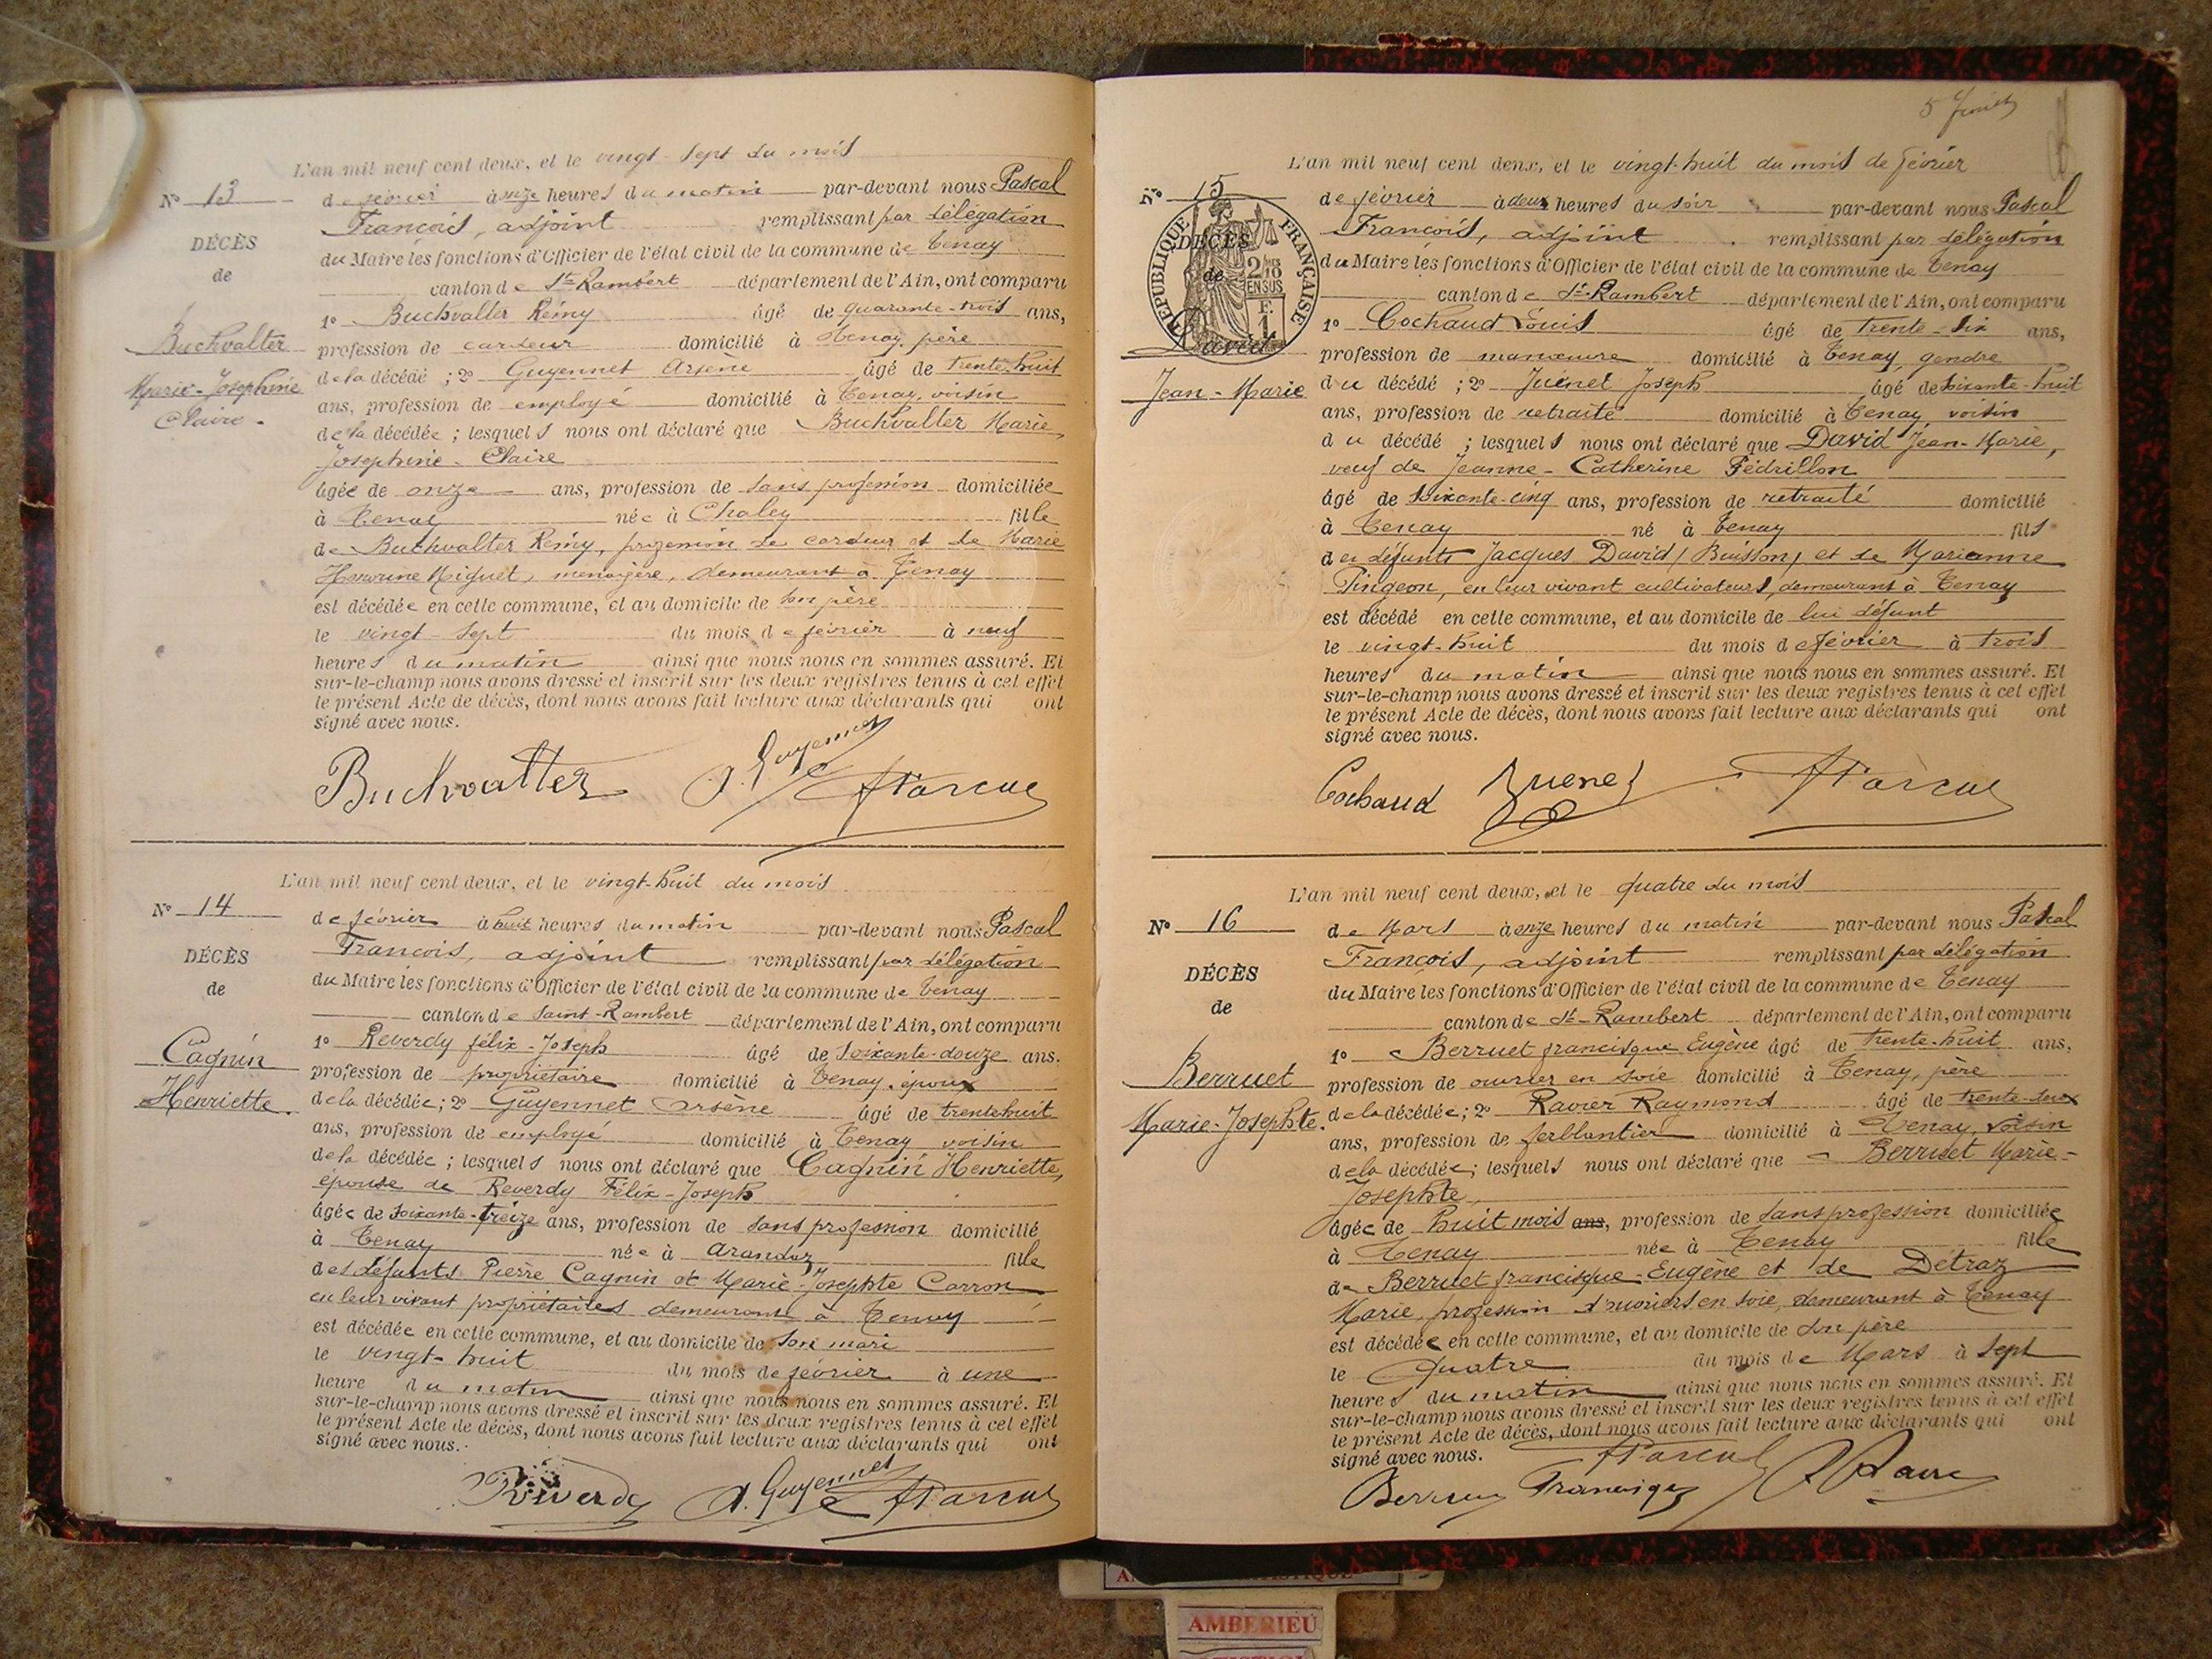 L'an mil neuf cent deux, et le vingt-sept du mois
N° 13
de février à onze heures du matin par-devant nous Pascal
François, adjoint remplissant par délégation
DÉCÈS
du Maire les fonctions d'Officier de l'état civil de la commune de Tenay
de
canton de St-Rambert département de l'Ain, ont comparu
1° Buchvalter Rémy âgé de quarante-trois ans,
Buchvalter
profession de cardeur domicilié à Tenay, père
Marie-Joséphine
de la décédé ; 2° Guyennet Arsène âgé de trente-huit
Claire.
ans, profession de employé domicilié à Tenay, voisin
de la décédée ; lesquels nous ont déclaré que Buchvalter Marie,
Joséphine-Claire
âgée de onze ans, profession de sans profession domiciliée
à Tenay née à Chaley fille
de Buchvalter Rémy, profession de cardeur et de Marie
Miguet, ménagère, demeurant à Tenay
est décédée en cette commune, et au domicile de son père
le vingt-sept du mois de février à neuf
heures du matin ainsi que nous nous en sommes assuré. Et
sur-le-champ nous avons dressé et inscrit sur les deux registres tenus à cet effet
le présent Acte de décès, dont nous avons fait lecture aux déclarants qui ont
signé avec nous.
Buchvalter A. Guyennet FPascal
L'an mil neuf cent deux, et le vingt-huit du mois
N° 14
de février à huit heures du matin par-devant nous Pascal
François, adjoint remplissant par délégation
DÉCÈS
du Maire les fonctions d'Officier de l'état civil de la commune de Tenay
de
canton de Saint-Rambert département de l'Ain, ont comparu
1° Reverdy félix-Joseph âgé de soixante-douze ans.
Cagnin
profession de propriétaire domicilié à Tenay, époux
Henriette.
de la décédée ; 2° Guyennet Arsène âgé de trente huit
ans, profession de employé domicilié à Tenay voisin
de la décédée ; lesquels nous ont déclaré que Cagnin Henriette,
épouse de Reverdy Félix-Joseph
âgée de soixante-treize ans, profession de sans profession domicilié
à Tenay née à Arandaz fille
des défunts Pierre Cagnin et Marie-Josephte Carron
en leur vivant propriétaires demeurant à Tenay
est décédée en cette commune, et au domicile de son mari
le vingt-huit du mois de février à une
heure du matin ainsi que nous nous en sommes assuré. Et
sur-le-champ nous avons dressé et inscrit sur les deux registres tenus à cet effet
le présent Acte de décès, dont nous avons fait lecture aux déclarants qui ont
signé avec nous.
Reverdy A. Guyennet FPascal
L'an mil neuf cent deux, et le vingt-huit du mois de février
N° 15
de février à deux heures du soir par-devant nous Pascal
François, adjoint remplissant par délégation
DÉCÈS
de
RÉPUBLIQUE FRANÇAISE
du Maire les fonctions d'Officier de l'état civil de la commune de Tenay
canton de St-Rambert département de l'Ain, ont comparu
1° Cochaud Louis âgé de trente-six ans,
David
profession de manœuvre domicilié à Tenay, gendre
Jean-Marie
du décédé ; 2° Juénet Joseph âgé de soixante-huit
ans, profession de retraité domicilié à Tenay voisin
du décédé ; lesquels nous ont déclaré que David Jean-Marie,
veuf de Jeanne-Catherine Pédrillon
âgé de soixante-cinq ans, profession de retraité domicilié
à Tenay né à Tenay fils
de défunts Jacques David (Buisson) et de Marianne
Pingeon, en leur vivant cultivateurs, demeurant à Tenay
est décédé en cette commune, et au domicile de lui défunt
le vingt-huit du mois de février à trois
heures du matin ainsi que nous nous en sommes assuré. Et
sur-le-champ nous avons dressé et inscrit sur les deux registres tenus à cet effet
le présent Acte de décès, dont nous avons fait lecture aux déclarants qui ont
signé avec nous.
Cochaud Juenet FPascal
L'an mil neuf cent deux, et le quatre du mois
N° 16
de Mars à onze heures du matin par-devant nous Pascal
François, adjoint remplissant par délégation
DÉCÈS
du Maire les fonctions d'Officier de l'état civil de la commune de Tenay
de
canton de St-Rambert département de l'Ain, ont comparu
1° Berruet francisque Eugène âgé de trente-huit ans,
Berruet
profession de ouvrier en soie domicilié à Tenay, père
Marie-Josephte.
de la décédée ; 2° Ravier Raymond âgé de trente-deux
ans, profession de ferblantier domicilié à Tenay, voisin
de la décédée ; lesquels nous ont déclaré que Berruet Marie-
Josephte,
âgée de huit mois ans, profession de sans profession domiciliée
à Tenay née à Tenay fille
de Berruet francisque-Eugène et de Détraz
Marie, profession d'ouvriers en soie, demeurant à Tenay
est décédée en cette commune, et au domicile de son père
le quatre du mois de Mars à sept
heures du matin ainsi que nous nous en sommes assuré. Et
sur-le-champ nous avons dressé et inscrit sur les deux registres tenus à cet effet
le présent Acte de décès, dont nous avons fait lecture aux déclarants qui ont
signé avec nous. FPascal
Berruet Francisque
AMBERIEU